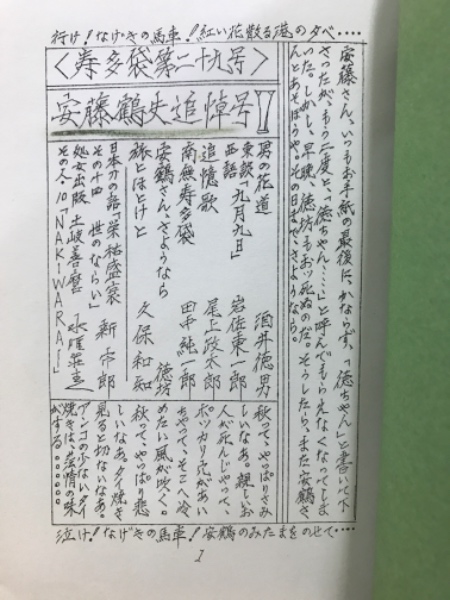 行け！なげきの馬車！！紅い花散る港の夕べ・・・・
安藤さん、いつもお手紙の最後に、かならず、「徳ちゃん」と書いて下
さったが、もう二度と、「徳ちゃん……」と呼んでもらえなくなってしま
いった。しかし、早晩、徳坊もおッ死ぬのだ。そうしたら、また安鶴さ
んとあそぼうや。その日まで、さようなら。
＜寿多袋第二十九号＞
安藤鶴夫追悼号！
男の花道 酒井徳男
東談「九月九日」 岩佐東一郎
西語
追憶歌 尾上政太郎
南無寿多袋 田中純一郎
安鶴さん、さようなら 徳坊
旅とほとけと 久保和知
日本カクの話「栄祐盛衰」 新市郎
その十四 世のならい」
処女出版 土岐善麿 水曜荘主
その人・10「NAKIWARAI」
秋って、やっぱりさみ
しいなあ。親しいお
人が死んじゃって、
ポッカリ穴があい
ちゃって、そこへ冷
めたい風が吹く。
秋って、やっぱり悲
しいなあ。タイ焼き
見ると切ないなあ。
アンコの少ないタイ
焼きは、薄情の味
がする。。。。。。
泣け！なげきの馬車！安鶴のみたまをのせて・・・・
1